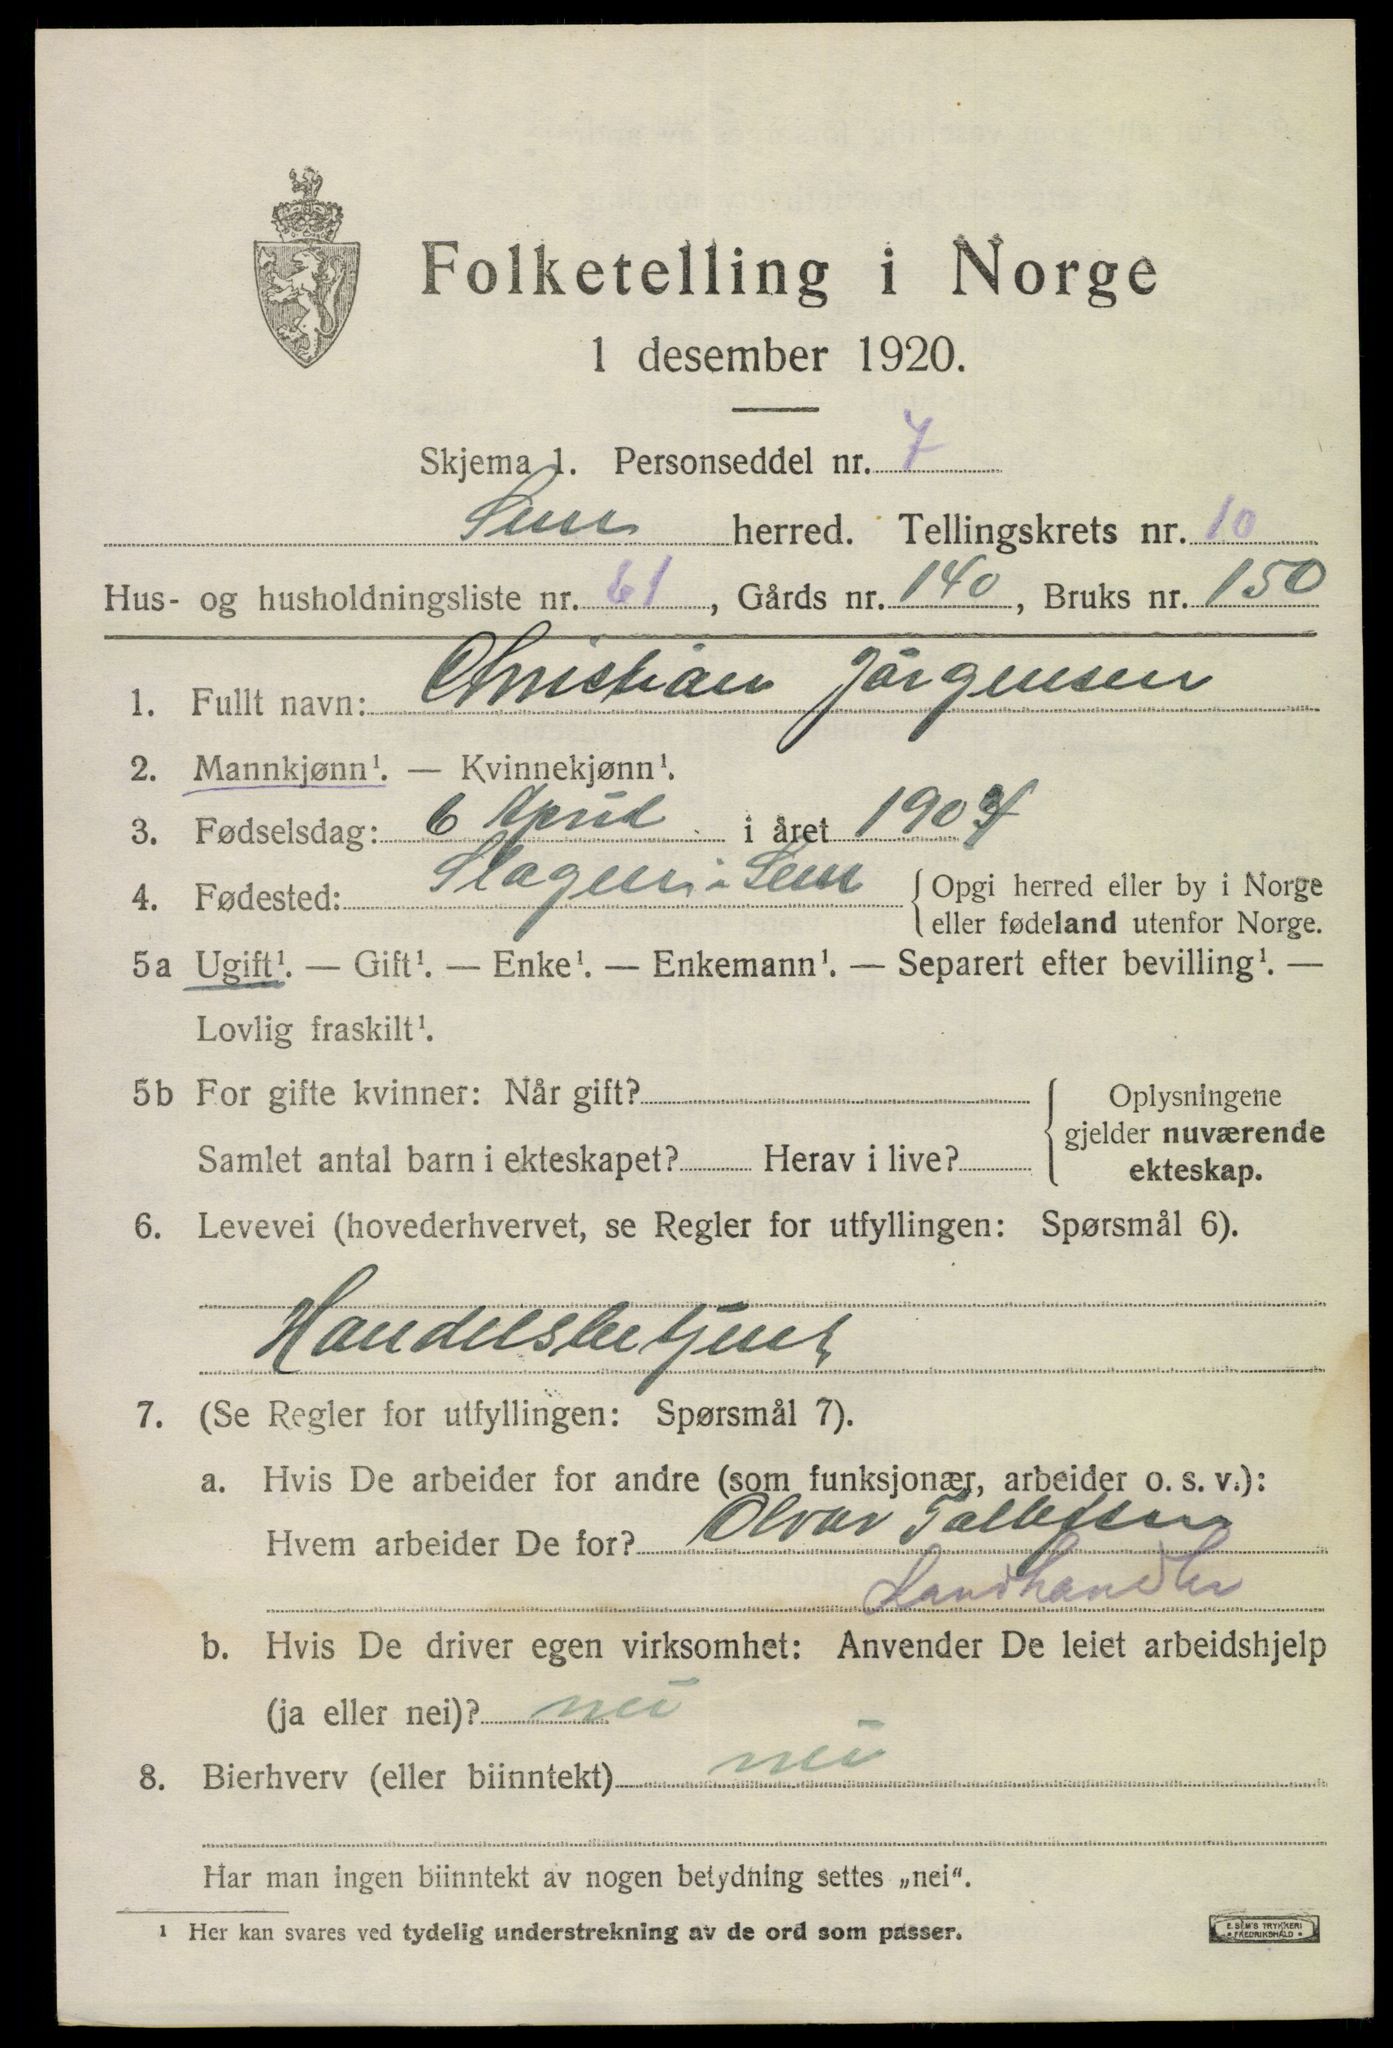 Folketelling i Norge
1 desember 1920.
Skjema 1. Personseddel nr. 7
Sem herred. Tellingskrets nr. 10
Hus- og husholdningsliste nr. 61, Gårds nr. 140, Bruks nr. 150
1. Fullt navn: Christian Jörgensen
2. Mannkjønn¹. — Kvinnekjønn¹.
3. Fødselsdag: 6 April i året 1904
4. Fødested: Slagen i Sem { Opgi herred eller by i Norge
eller fødeland utenfor Norge.
5a Ugift¹. — Gift¹. — Enke¹. — Enkemann¹. — Separert efter bevilling¹. —
Lovlig fraskilt¹.
5b For gifte kvinner: Når gift? { Oplysningene
gjelder nuværende
Samlet antal barn i ekteskapet? Herav i live? ekteskap.
6. Levevei (hovederhvervet, se Regler for utfyllingen: Spørsmål 6).
Handelsbetjent
7. (Se Regler for utfyllingen: Spørsmål 7).
a. Hvis De arbeider for andre (som funksjonær, arbeider o. s. v.):
Hvem arbeider De for? Olvar
Landhandler
b. Hvis De driver egen virksomhet: Anvender De leiet arbeidshjelp
(ja eller nei)? nei
8. Bierhverv (eller biinntekt) nei
Har man ingen biinntekt av nogen betydning settes „nei“.
¹ Her kan svares ved tydelig understrekning av de ord som passer.
E. SEM'S TRYKKERI
FREDRIKSHALD